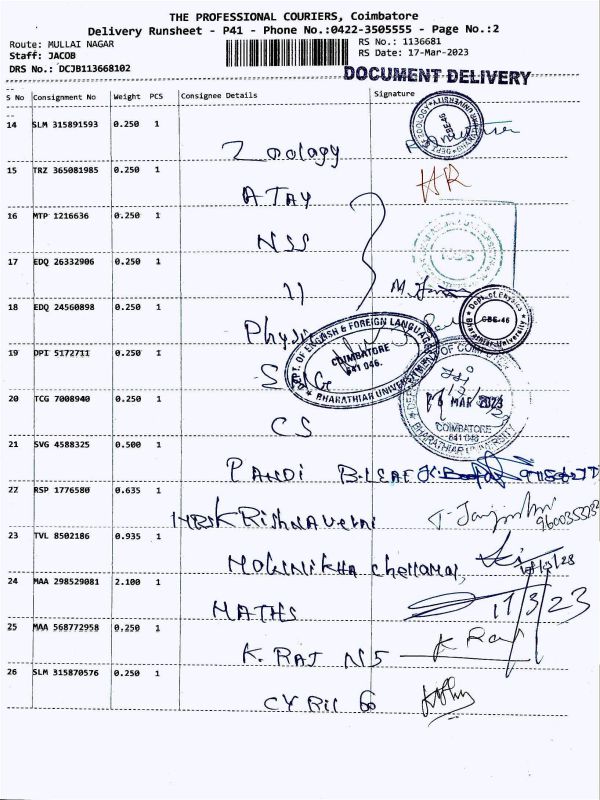 THE PROFESSIONAL COURIERS, Coimbatore
Delivery Runsheet - P41 - Phone No.:0422-3505555 - Page No.:2
Route: MULLAI NAGAR RS No.: 1136681
Staff: JACOB RS Date: 17-Mar-2023
DRS No.: DCJB113668102 DOCUMENT DELIVERY
S No Consignment No Weight PCS Consignee Details Signature
14 SLM 315891593 0.250 1 Zoology
15 TRZ 365081985 0.250 1 ATAY HR
16 MTP 1216636 0.250 1 NSS
17 EDQ 26332906 0.250 1 11 M.
18 EDQ 24560898 0.250 1 Physi
Dept. of Physics
Bharathiar University
CBE-46
19 DPI 5172711 0.250 1 S
DEPT. OF ENGLISH & FOREIGN LANGUAGES
COIMBATORE
641 046.
BHARATHIAR UNIVERSITY
20 TCG 7008940 0.250 1 CS
MAR 2023
COIMBATORE
641 046
BHARATHIAR UNIVERSITY
21 SVG 4588325 0.500 1 PANDI B.LEAF
22 RSP 1776580 0.635 1 KRISHNAVENI
23 TVL 8502186 0.935 1
24 MAA 298529081 2.100 1 MATHS 17/3/23
25 MAA 568772958 0.250 1 K. RAJ N5 K Raj
26 SLM 315870576 0.250 1 CYRIL 60